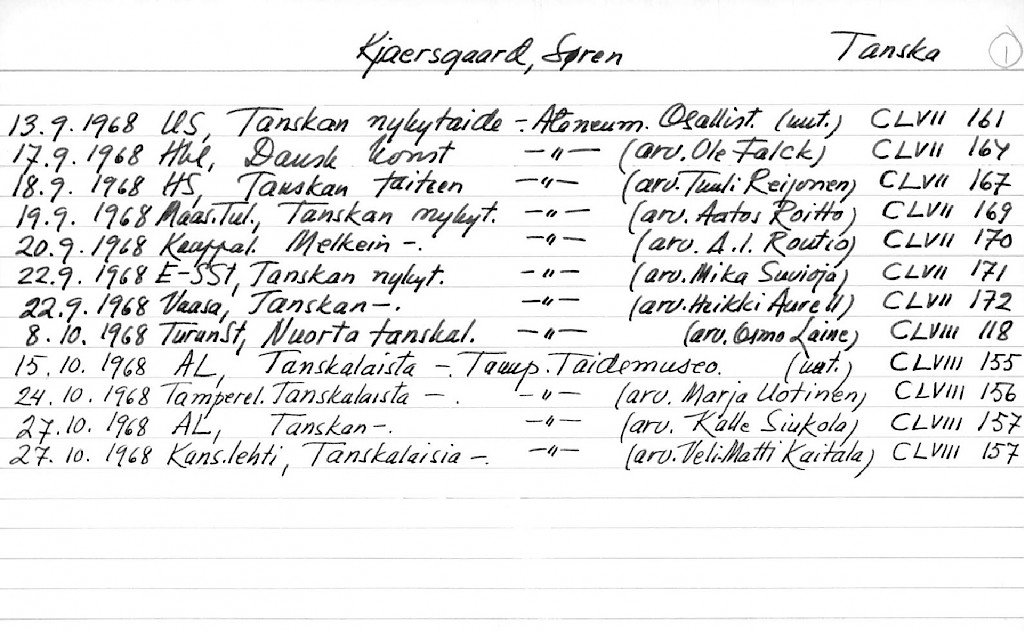 Kjaersgaard, Søren Tanska 1
13.9.1968 US, Tanskan nykytaide -. Ateneum. Osallist. (uut.) CLVII 161
17.9.1968 Hbl, Dansk konst -"- (arv. Ole Falck) CLVII 164
18.9.1968 HS, Tanskan taiteen -"- (arv. Tuuli Reijonen) CLVII 167
19.9.1968 Maas.Tul., Tanskan nykyt. -"- (arv. Aatos Roitto) CLVII 169
20.9.1968 Kauppal. Melkein -. -"- (arv. A.I. Routio) CLVII 170
22.9.1968 E-SSt, Tanskan nykyt. -"- (arv. Mika Suvioja) CLVII 171
22.9.1968 Vaasa, Tanskan -. -"- (arv. Heikki Aurell) CLVII 172
8.10.1968 TurunSt, Nuorta tanskal. -"- (arv. Osmo Laine) CLVIII 118
15.10.1968 AL, Tanskalaista -. Tamp. Taidemuseo. (uut.) CLVIII 155
24.10.1968 Tamperel. Tanskalaista -. -"- (arv. Marja Uotinen) CLVIII 156
27.10.1968 AL, Tanskan -. -"- (arv. Kalle Siukola) CLVIII 157
27.10.1968 Kans.lehti, Tanskalaisia -. -"- (arv. Veli-Matti Kaitala) CLVIII 157